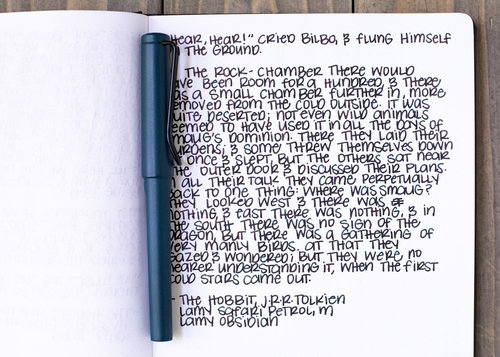 Hear, Hear!" cried Bilbo, & flung himself
the ground.
the rock-chamber there would
have been room for a hundred, & there
was a small chamber further in, more
removed from the cold outside. It was
quite deserted; not even wild animals
seemed to have used it in all the days of
Smaug's dominion. There they laid their
burdens; & some threw themselves down
once & slept, but the others sat near
the outer door & discussed their plans.
In all their talk they came perpetually
back to one thing: where was Smaug?
They looked west & there was
nothing, & east there was nothing, & in
the south there was no sign of the
dragon, but there was a gathering of
very manly birds. At that they
gazed & wondered; but they were no
nearer understanding it, when the first
cold stars came out.
- The Hobbit, J.R.R. Tolkien
Lamy Safari Petrol, M
Lamy Obsidian